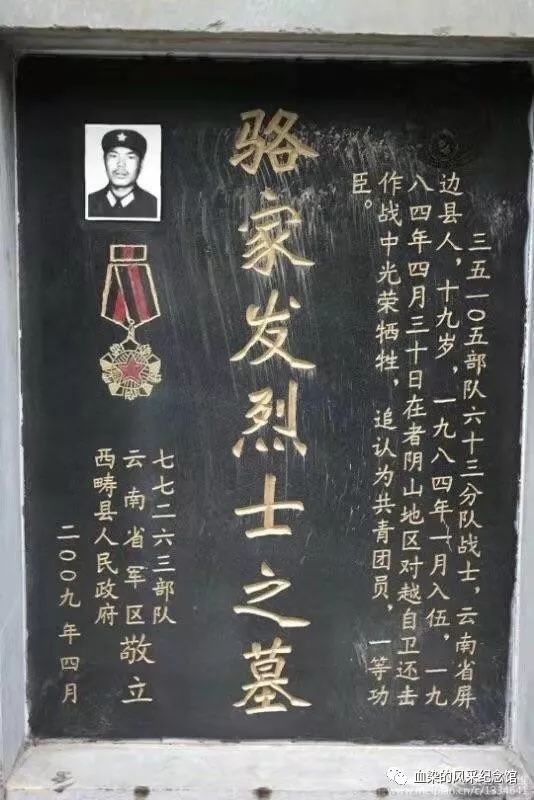 三五一0五部队六十三分队战士，云南省屏
边县人，十九岁，一九八四年一月入伍，一九
八四年四月三十日在者阴山地区对越自卫还击
作战中光荣牺牲，追认为共青团员，一等功
臣。
骆家发烈士之墓
七七二六三部队
云南省军区敬立
西畴县人民政府
二00九年四月
血染的风采纪念馆
www.meipian.cn/c/1334641